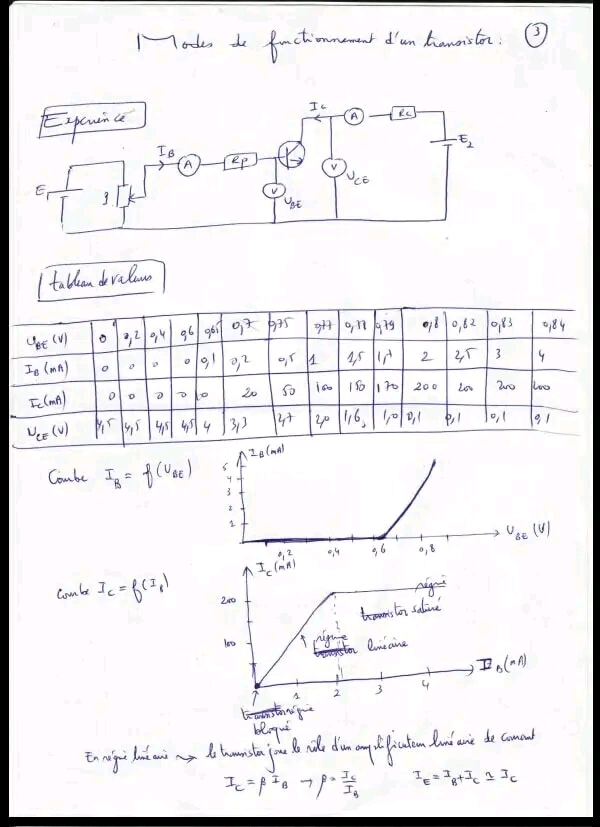 Modes de fonctionnement d'un transistor : 3
Expérience
IC A RC
IB A Rp V UCE E2
E1 P V UBE
tableau de valeurs
UBE (V) 0 0,2 0,4 0,6 0,65 0,7 0,75 0,77 0,78 0,79 0,8 0,82 0,83 0,84
IB (mA) 0 0 0 0 0,1 0,2 0,5 1 1,5 1,7 2 2,5 3 4
IC (mA) 0 0 0 0 10 20 50 100 150 170 200 200 200 200
UCE (V) 4,5 4,5 4,5 4,5 4 3,3 2,7 2,0 1,6 1,0 0,1 0,1 0,1 0,1
Courbe IB = f(UBE)
IB (mA)
5
4
3
2
1
0,2 0,4 0,6 0,8 UBE (V)
Courbe IC = f(IB)
IC (mA)
200
100
régime
transistor saturé
régime
transistor linéaire
1 2 3 4 IB (mA)
transistor régime
bloqué
En régime linéaire → le transistor joue le rôle d'un amplificateur linéaire de courant
IC = β IB → β = IC/IB IE = IB + IC ≃ IC